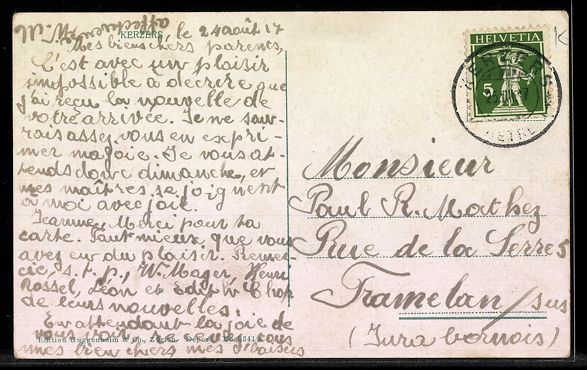 KERZERS, le 24 août 17
Mes bien chers parents,
C'est avec un plaisir
impossible à décrire que
j'ai reçu la nouvelle de
votre arrivée. Je ne sau-
rais assez vous en expri-
mer ma joie. Je vous at-
tends donc dimanche, et
mes maîtres se joignent
à moi avec joie.
Jeanne, Merci pour ta
carte. Tant mieux, que vous
avez eu du plaisir. Remer-
cie, s.t.p., W. Mager, Henri
Rossel, Léon et Edith
de leurs nouvelles.
En attendant la joie de
vous voir
mes bien chers mes baisers
Edition Guggenheim & Co., Zürich
HELVETIA
5
KERZERS
Monsieur
Paul R. Mathez
Rue de la Serre 5
Tramelan/sus
(Jura bernois)
K